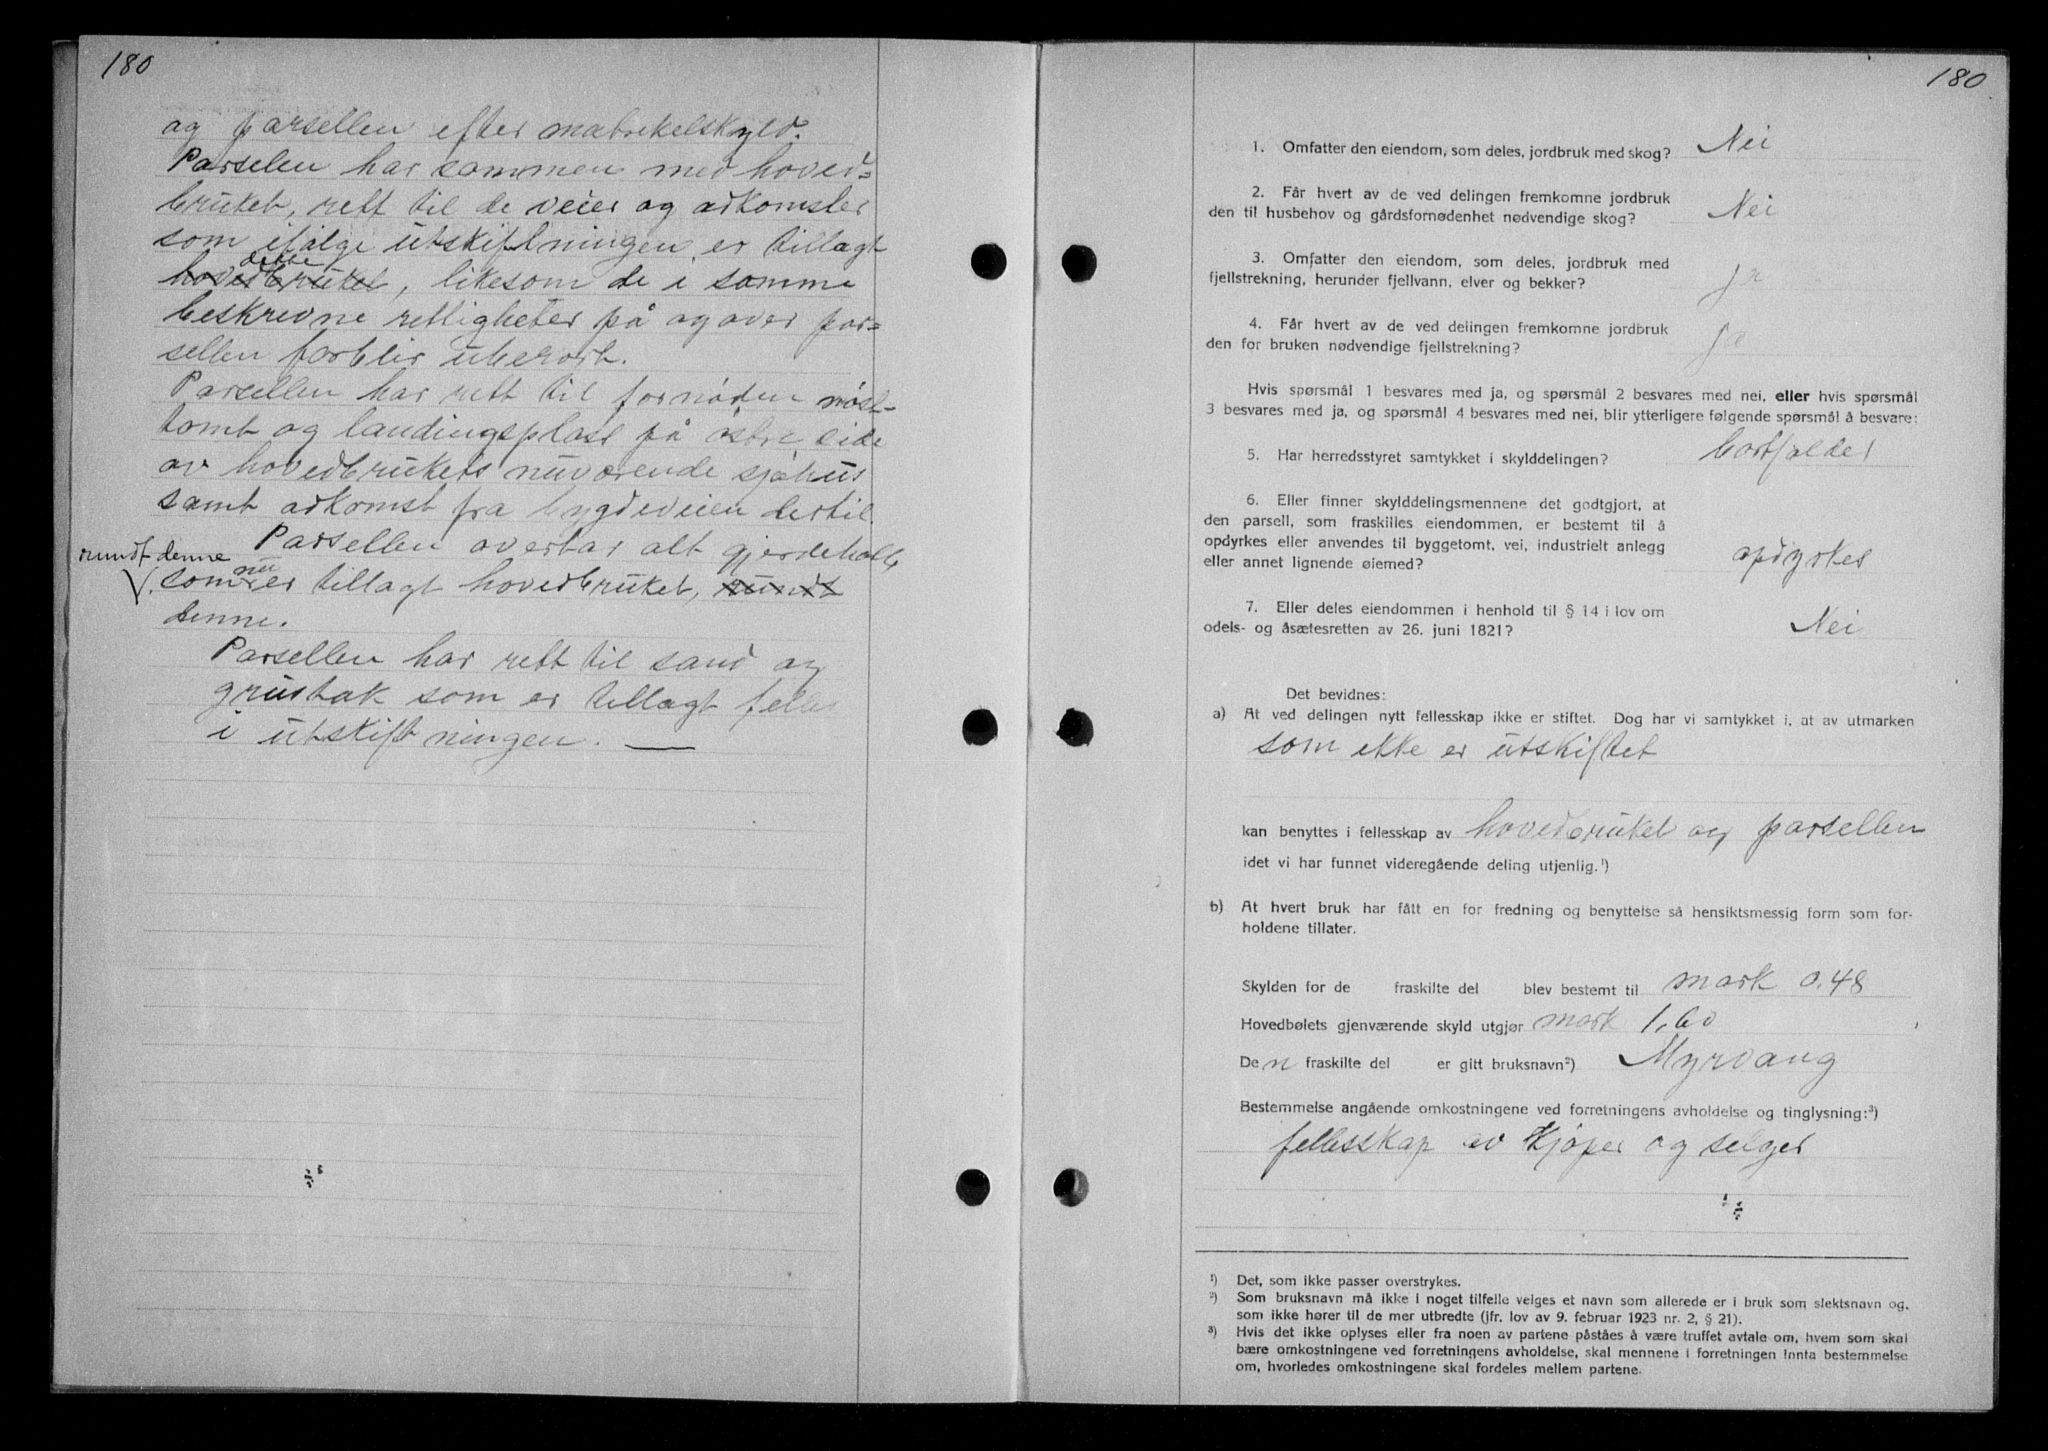 180
og parsellen efter matrikelskyld.
Parselen har sammen med hoved-
bruket, rett til de veier og adkomster
som ifølge utskiftningen er tillagt
dette
hovedbruket, likesom de i samme
beskrevne rettigheter på og over par-
sellen forblir uberørt.
Parsellen har rett til fornøden nøst-
tomt og landingsplass på østre side
av hovedbrukets nuværende sjøhus
samt adkomst fra bygdeveien dertil.
Parsellen overtar alt gjerdehold
rundt denne
som nu er tillagt hovedbruket, rundt
denne.
Parsellen har rett til sand og
grustak som er tillagt felles
i utskiftningen. —
180
1. Omfatter den eiendom, som deles, jordbruk med skog? Nei
2. Får hvert av de ved delingen fremkomne jordbruk
den til husbehov og gårdsfornødenhet nødvendige skog? Nei
3. Omfatter den eiendom, som deles, jordbruk med
fjellstrekning, herunder fjellvann, elver og bekker? ja
4. Får hvert av de ved delingen fremkomne jordbruk
den for bruken nødvendige fjellstrekning? ja
Hvis spørsmål 1 besvares med ja, og spørsmål 2 besvares med nei, eller hvis spørsmål
3 besvares med ja, og spørsmål 4 besvares med nei, blir ytterligere følgende spørsmål å besvare:
5. Har herredsstyret samtykket i skylddelingen? bortfalder
6. Eller finner skylddelingsmennene det godtgjort, at
den parsell, som fraskilles eiendommen, er bestemt til å
opdyrkes eller anvendes til byggetomt, vei, industrielt anlegg
eller annet lignende øiemed? opdyrkes
7. Eller deles eiendommen i henhold til § 14 i lov om
odels- og åsætesretten av 26. juni 1821? Nei
Det bevidnes:
a) At ved delingen nytt fellesskap ikke er stiftet. Dog har vi samtykket i, at av utmarken
som ikke er utskiftet
kan benyttes i fellesskap av hovedbruket og parsellen
idet vi har funnet videregående deling utjenlig.¹)
b) At hvert bruk har fått en for fredning og benyttelse så hensiktsmessig form som for-
holdene tillater.
Skylden for de fraskilte del blev bestemt til mark 0.48
Hovedbølets gjenværende skyld utgjør mark 1,60
Den fraskilte del er gitt bruksnavn²) Myrvang
Bestemmelse angående omkostningene ved forretningens avholdelse og tinglysning:³)
fellesskap av kjøper og selger
¹) Det, som ikke passer overstrykes.
²) Som bruksnavn må ikke i noget tilfelle velges et navn som allerede er i bruk som slektsnavn og,
som ikke hører til de mer utbredte (jfr. lov av 9. februar 1923 nr. 2, § 21).
³) Hvis det ikke oplyses eller fra noen av partene påståes å være truffet avtale om, hvem som skal
bære omkostningene ved forretningens avholdelse, skal mennene i forretningen innta bestemmelse
om, hvorledes omkostningene skal fordeles mellem partene.